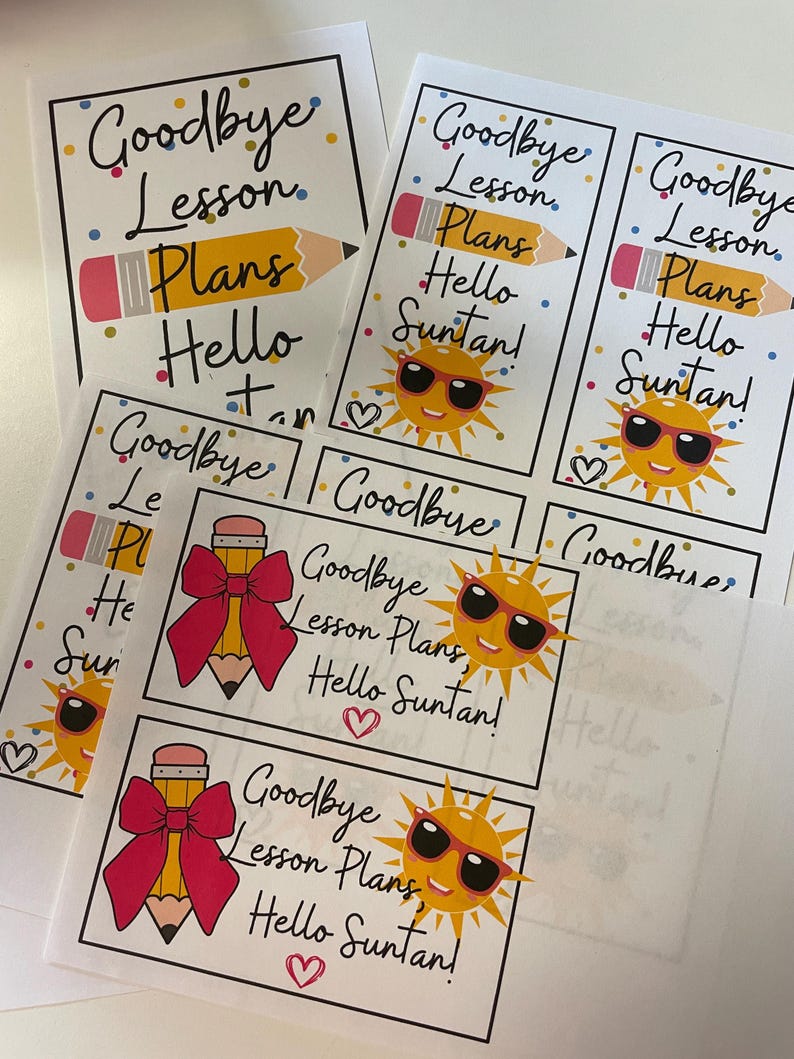 Goodbye
Lesson
Plans
Hello
Goodbye
Lesson
Plans
Hello
Suntan!
Goodbye
Lesson
Plans
Hello
Suntan!
Goodbye
Le
Pl
He
Sun
Goodbye
Goodbye
Goodbye
Lesson Plans,
Hello Suntan!
Goodbye
Lesson Plans,
Hello Suntan!
Lesson
Plans
Hello
Suntan!